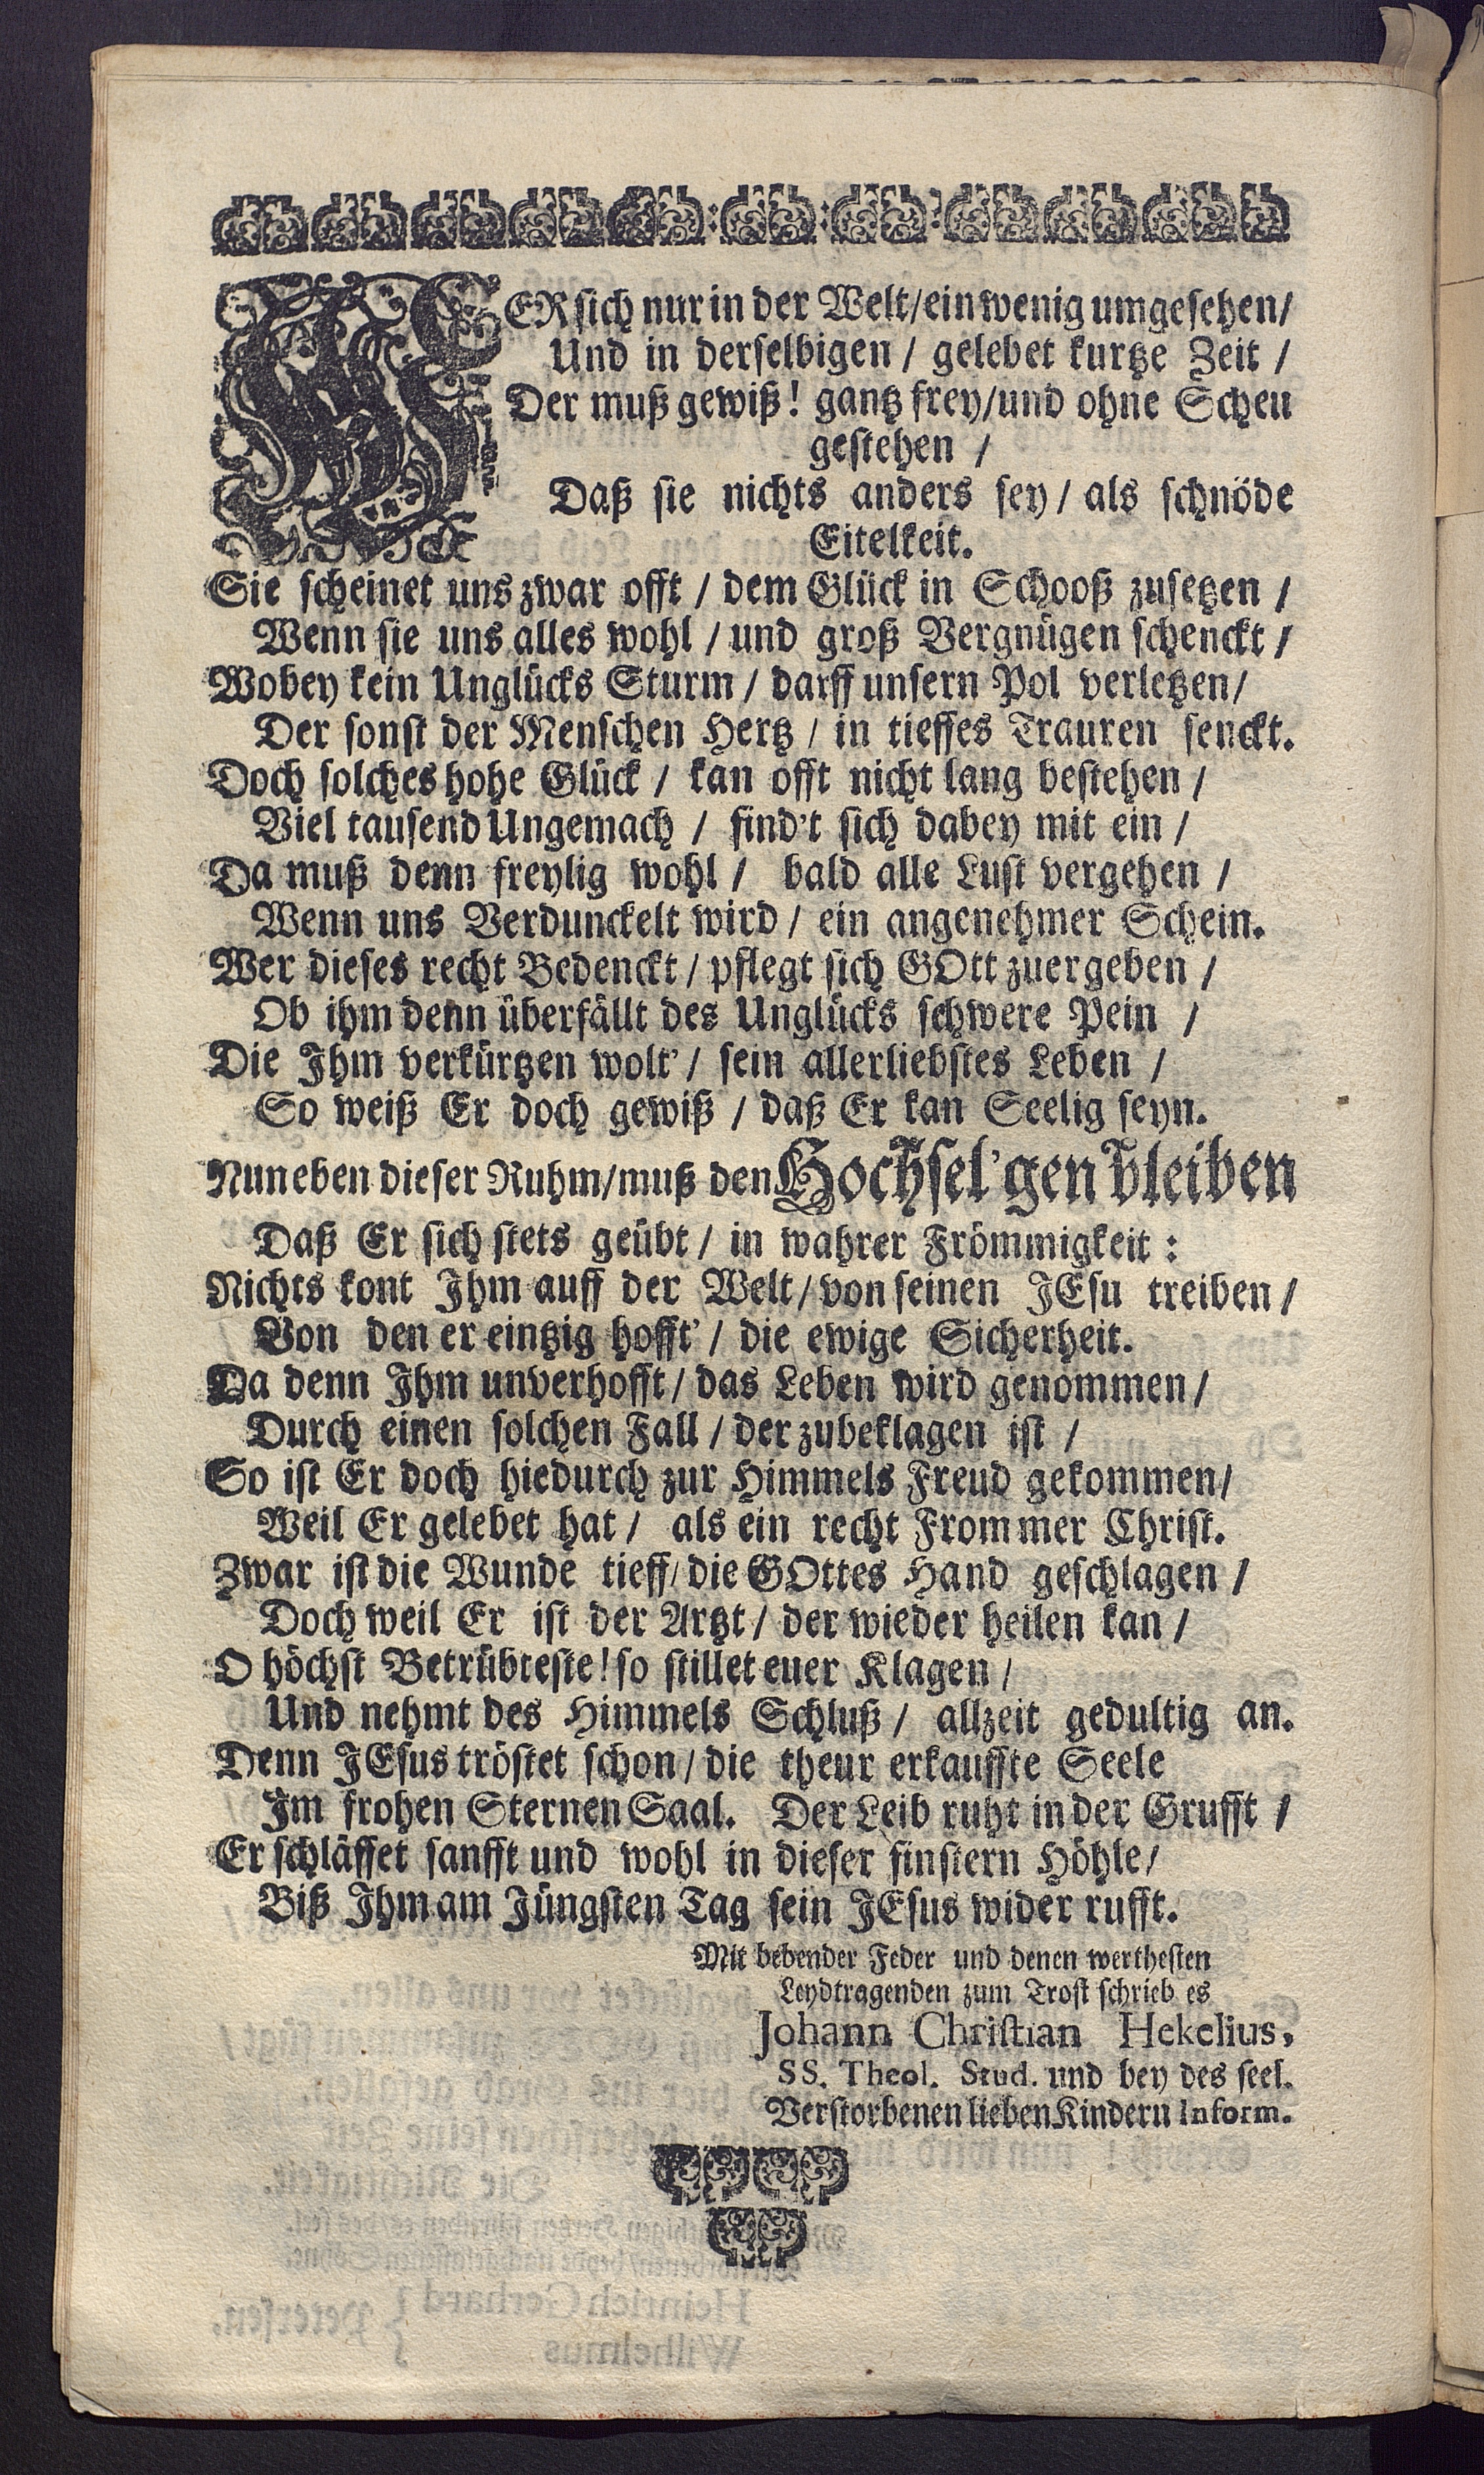 WER sich nur in der Welt/ ein wenig umgesehen/
Und in derselbigen / gelebet kurtze Zeit /
Der muß gewiß! gantz frey/und ohne Scheu
gestehen /
Daß sie nichts anders sey / als schnöde
Eitelkeit.
Sie scheinet uns zwar offt / dem Glück in Schooß zusetzen /
Wenn sie uns alles wohl / und groß Vergnügen schenckt /
Wobey kein Unglücks Sturm / darff unsern Pol verletzen/
Der sonst der Menschen Hertz / in tieffes Trauren senckt.
Doch solches hohe Glück / kan offt nicht lang bestehen /
Viel tausend Ungemach / find't sich dabey mit ein /
Da muß denn freylig wohl / bald alle Lust vergehen /
Wenn uns Verdunckelt wird / ein angenehmer Schein.
Wer dieses recht Bedenckt / pflegt sich GOtt zuergeben /
Ob ihm denn überfällt des Unglücks schwere Pein /
Die Ihm verkürtzen wolt' / sein allerliebstes Leben /
So weiß Er doch gewiß / daß Er kan Seelig seyn.
Nun eben dieser Ruhm/muß den Hochsel'gen bleiben
Daß Er sich stets geübt / in wahrer Frömmigkeit :
Nichts kont Ihm auff der Welt/ von seinen JEsu treiben /
Von den er eintzig hofft' / die ewige Sicherheit.
Da denn Ihm unverhofft / das Leben wird genommen /
Durch einen solchen Fall / der zubeklagen ist /
So ist Er doch hiedurch zur Himmels Freud gekommen/
Weil Er gelebet hat / als ein recht Frommer Christ.
Zwar ist die Wunde tieff/ die GOttes Hand geschlagen /
Doch weil Er ist der Artzt / der wieder heilen kan /
O höchst Betrübteste! so stillet euer Klagen /
Und nehmt des Himmels Schluß / allzeit gedultig an.
Denn JEsus tröstet schon / die theur erkauffte Seele
Im frohen Sternen Saal. Der Leib ruht in der Grufft /
Er schläffet sanfft und wohl in dieser finstern Höhle/
Biß Ihm am Jüngsten Tag sein JEsus wider rufft.
Mit bebender Feder und denen werthesten
Leydtragenden zum Trost schrieb es
Johann Christian Hekelius,
SS. Theol. Stud. und bey des seel.
Verstorbenen lieben Kindern Inform.